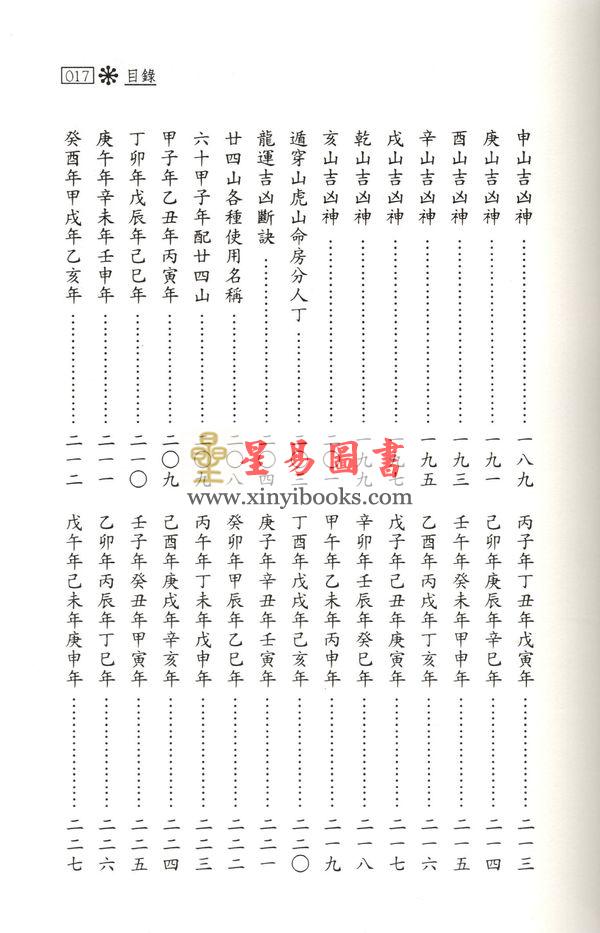 017 目錄
申山吉凶神……………………一八九
庚山吉凶神……………………一九一
酉山吉凶神……………………一九三
辛山吉凶神……………………一九五
戌山吉凶神……………………一九七
乾山吉凶神……………………一九九
亥山吉凶神……………………二〇一
遁穿山虎山命房分人丁……………
龍運吉凶斷訣…………………二〇四
廿四山各種使用名稱……………二〇八
六十甲子年配廿四山……………二〇九
甲子年乙丑年丙寅年……………二〇九
丁卯年戊辰年己巳年……………二一〇
庚午年辛未年壬申年……………二一一
癸酉年甲戌年乙亥年……………二一二
丙子年丁丑年戊寅年……………二一三
己卯年庚辰年辛巳年……………二一四
壬午年癸未年甲申年……………二一五
乙酉年丙戌年丁亥年……………二一六
戊子年己丑年庚寅年……………二一七
辛卯年壬辰年癸巳年……………二一八
甲午年乙未年丙申年……………二一九
丁酉年戊戌年己亥年……………二二〇
庚子年辛丑年壬寅年……………二二一
癸卯年甲辰年乙巳年……………二二二
丙午年丁未年戊申年……………二二三
己酉年庚戌年辛亥年……………二二四
壬子年癸丑年甲寅年……………二二五
乙卯年丙辰年丁巳年……………二二六
戊午年己未年庚申年……………二二七
星易圖書
www.xinyibooks.com